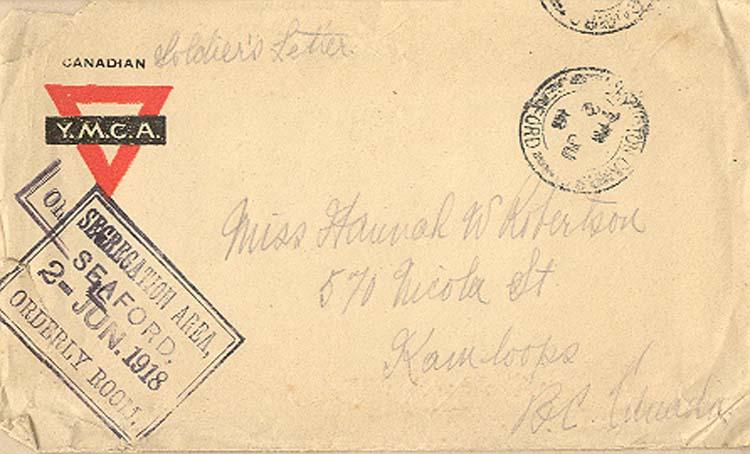 CANADIAN Soldier's Letter.
Y.M.C.A.
SEGREGATION AREA,
SEAFORD.
2-JUN.1918
ORDERLY ROOM.
SEAFORD
Miss Hannah W Robertson
570 Nicola St
Kamloops
B.C. Canada